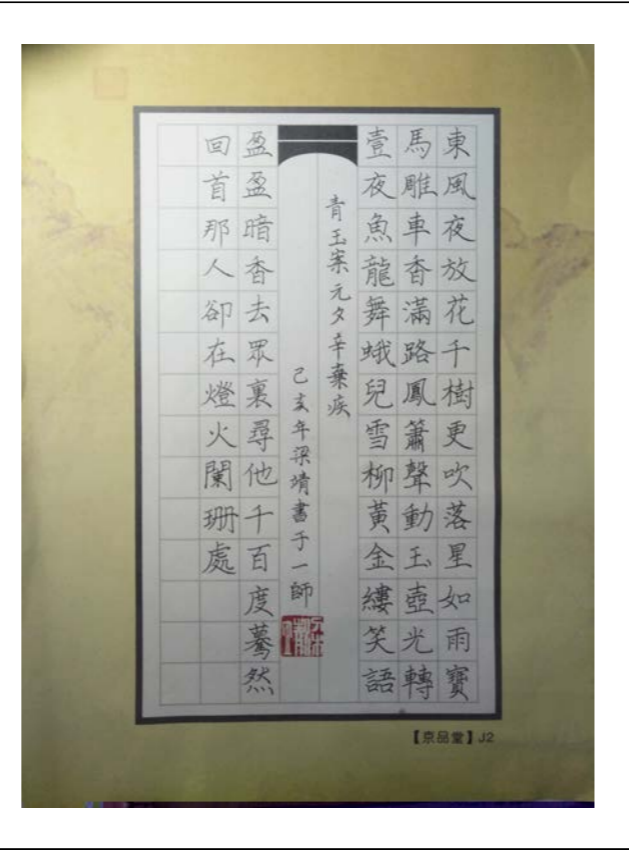 東風夜放花千樹更吹落星如雨寶
馬雕車香滿路鳳簫聲動玉壺光轉
壹夜魚龍舞蛾兒雪柳黃金縷笑語
青玉案元夕辛棄疾
己亥年梁靖書于一師
盈盈暗香去眾裏尋他千百度驀然
回首那人卻在燈火闌珊處
【京品堂】J2